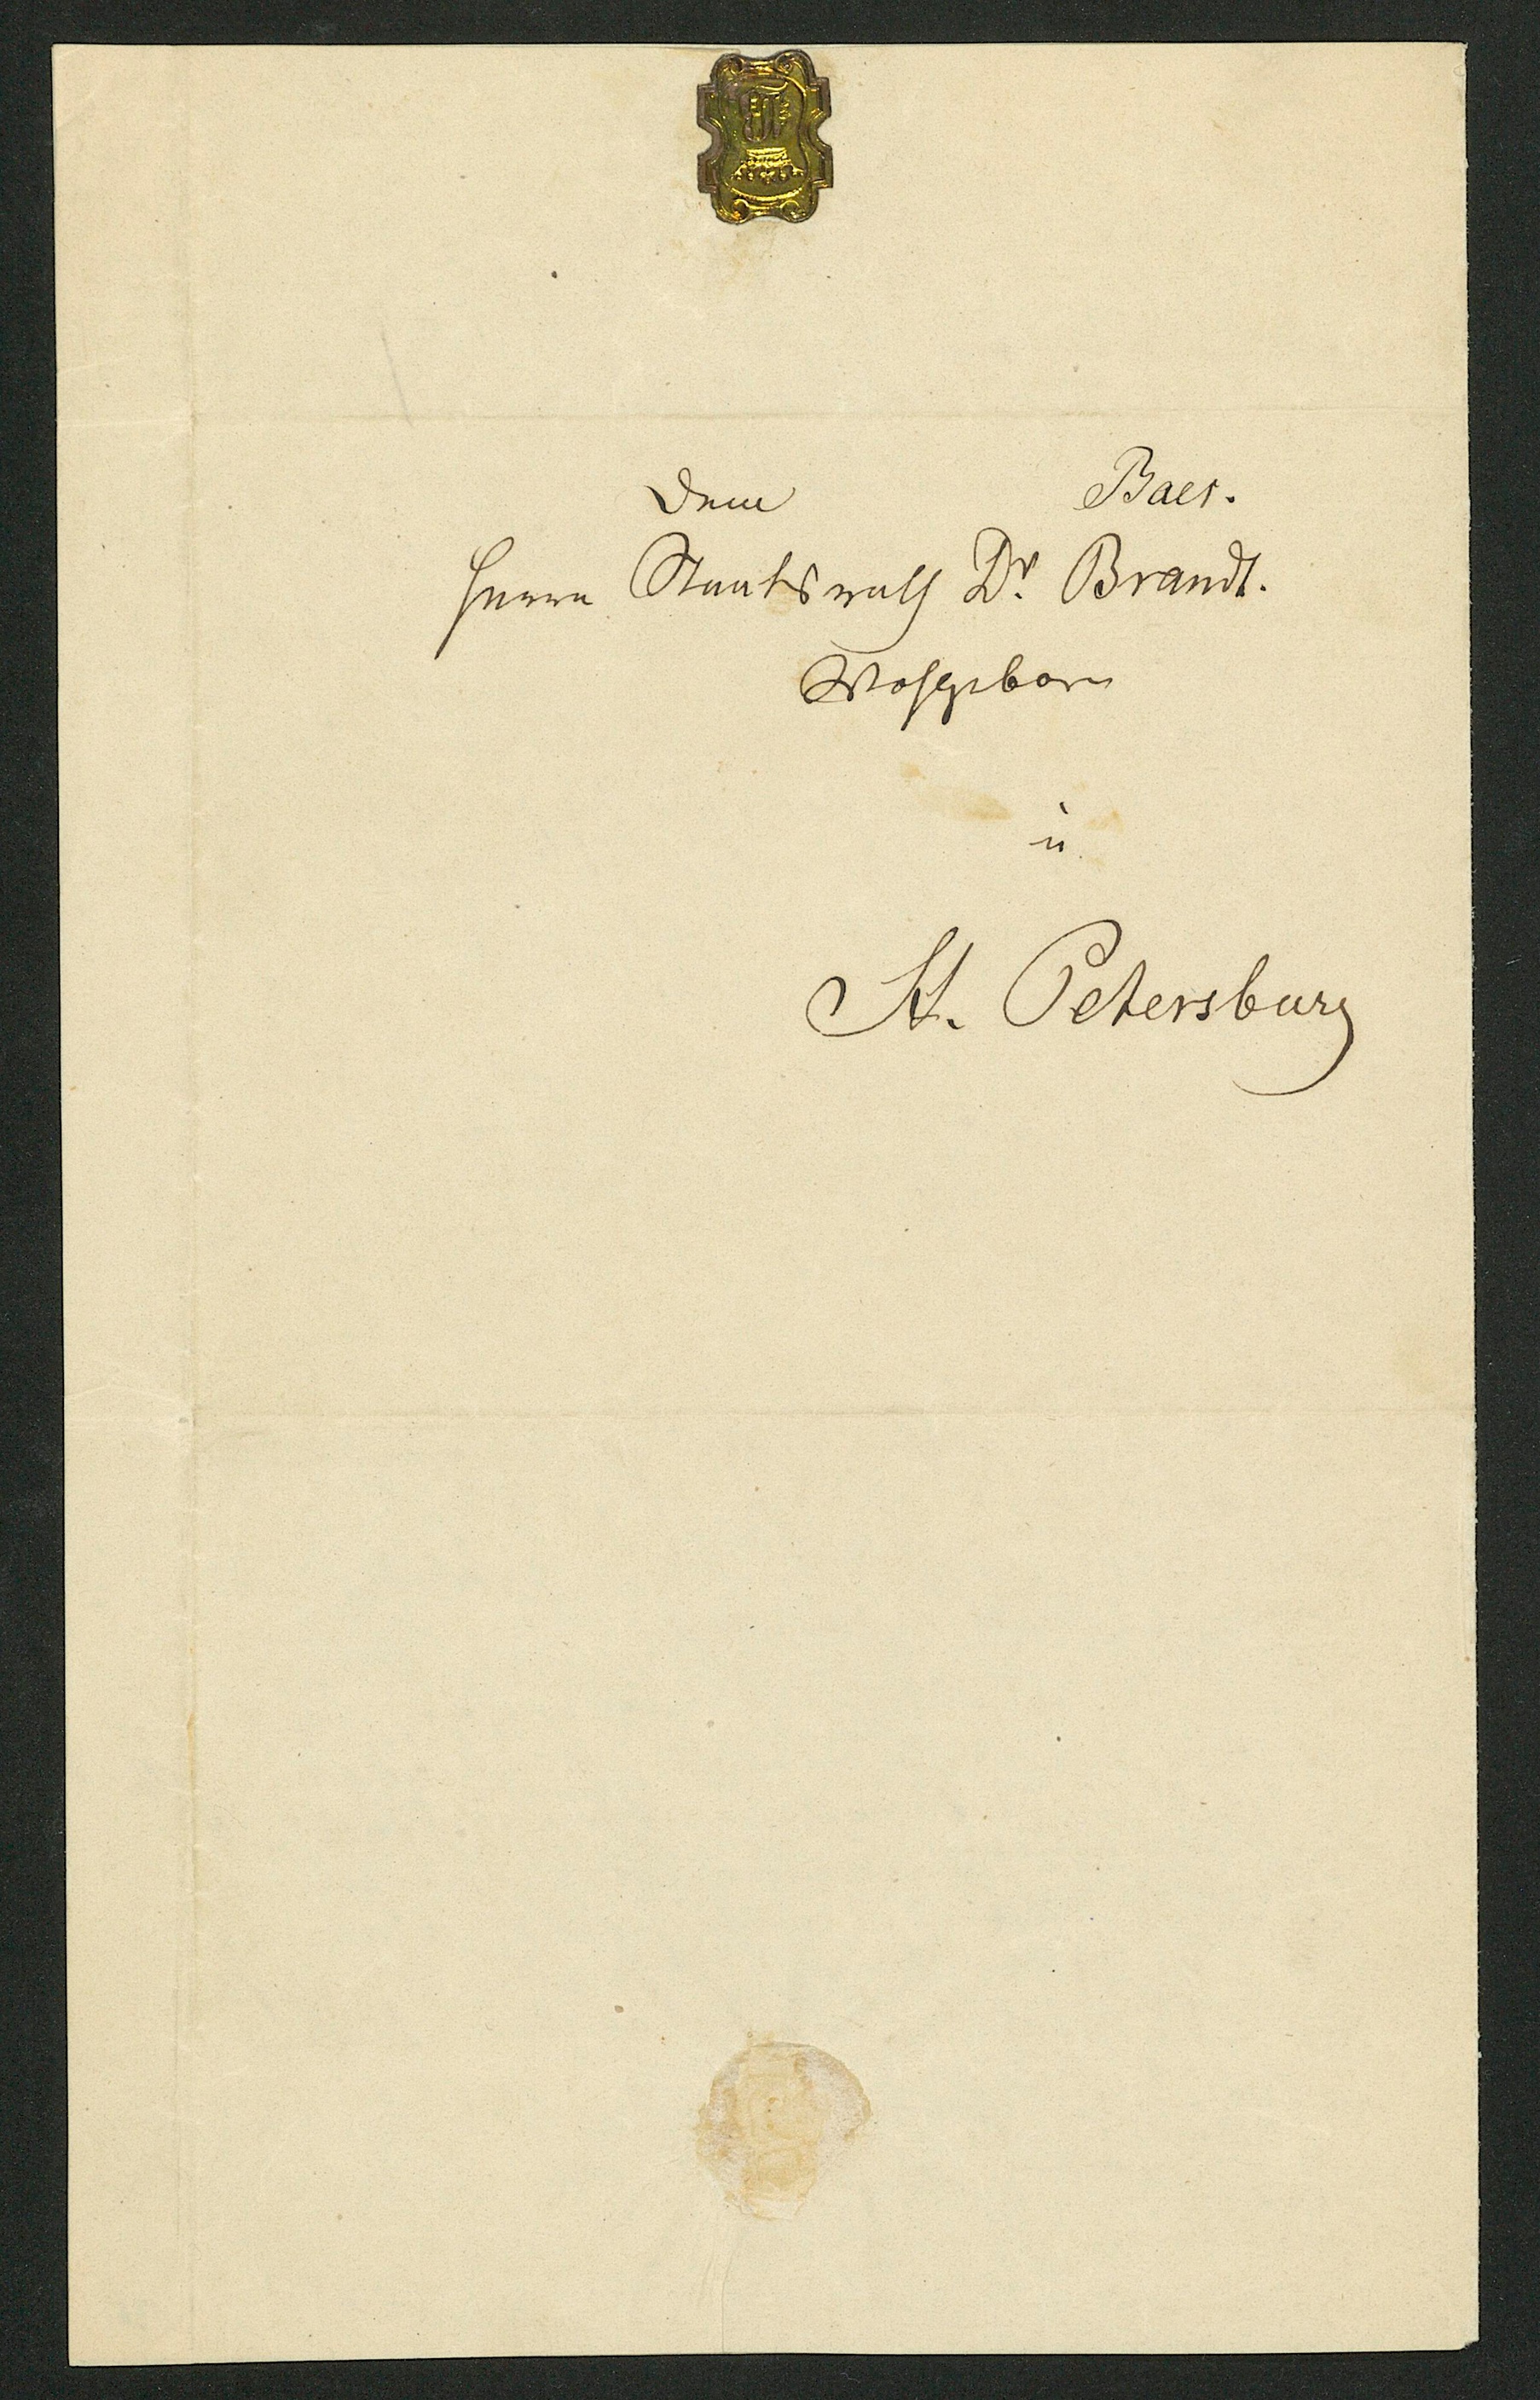 Dem Baer.
Herrn Staatsrath Dr. Brandt.
Wohlgeborn
in
St. Petersburg